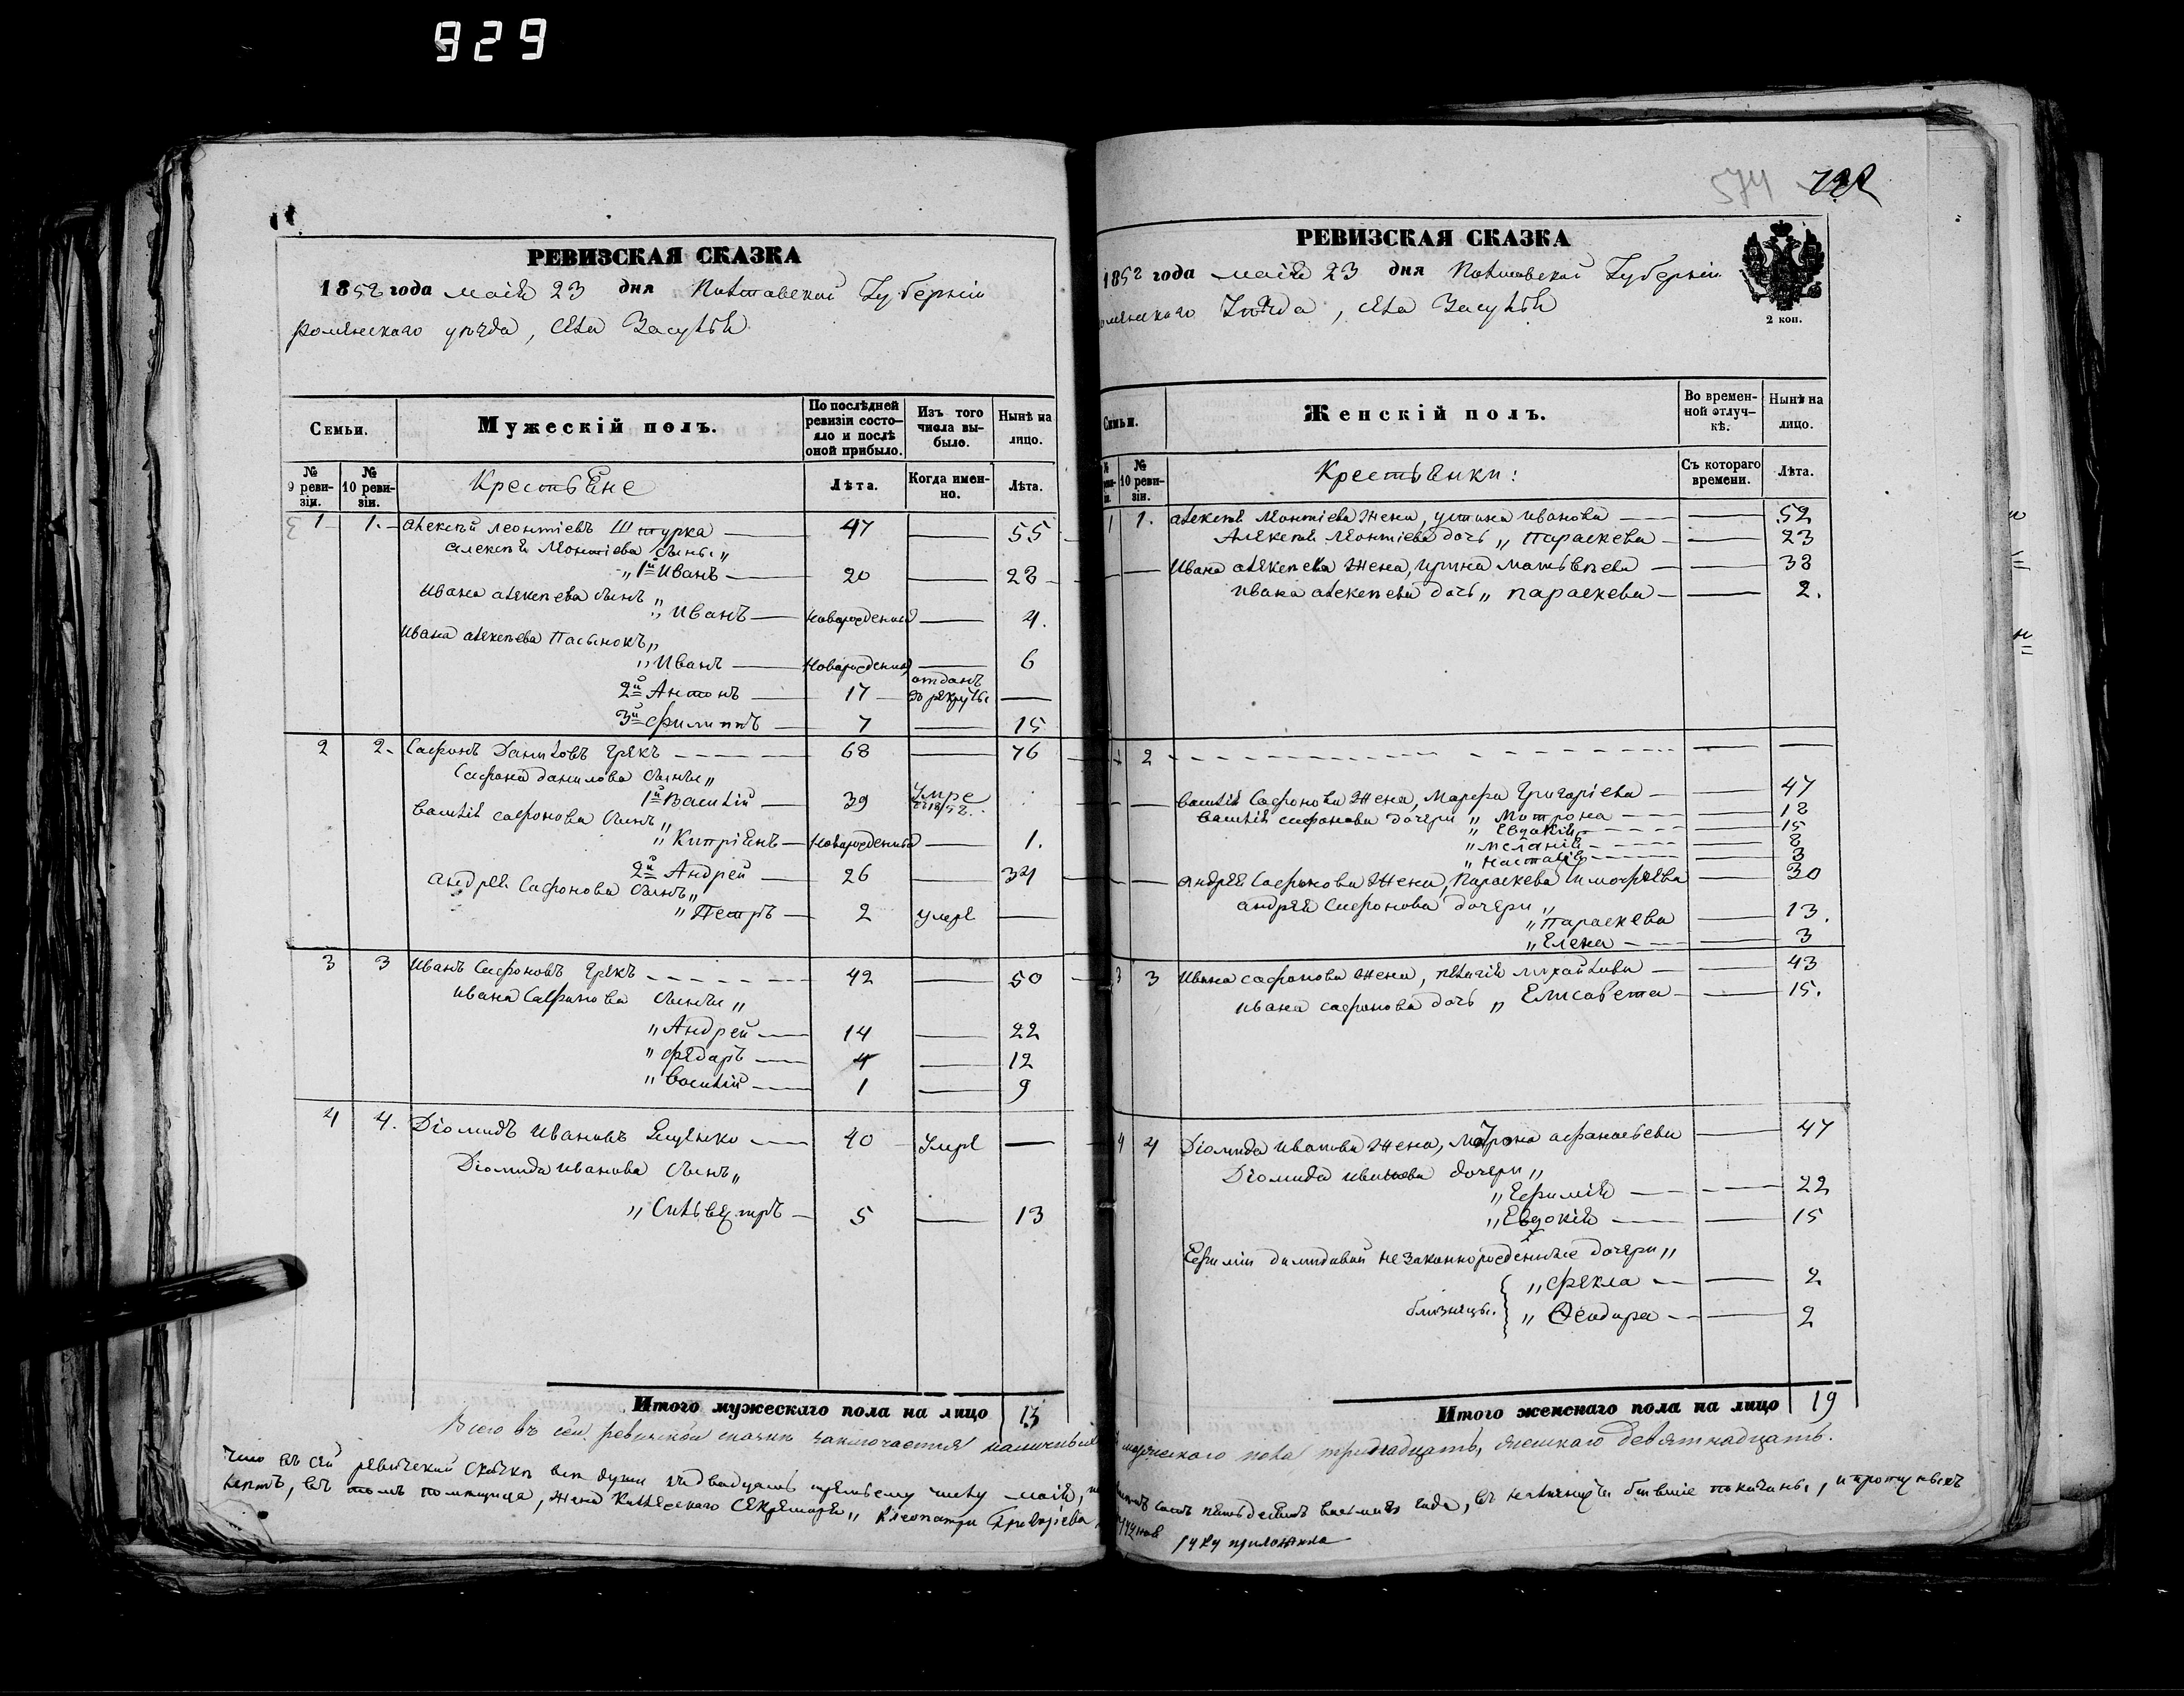 929
РЕВИЗСКАЯ СКАЗКА
1858 года маія 23 дня Полтавской Губерніи
роменскаго уѣзда, села Засулья
Семьи.
Мужескій полъ.
По послѣдней ревизіи состояло и послѣ оной прибыло.
Изъ того числа выбыло.
Нынѣ на лицо.
№ 9 ревизіи.
№ 10 ревизіи.
Крестьяне
Лѣта.
Когда именно.
Лѣта.
1 1. Алексѣй Леонтіевъ Штурка 47 55
Алексѣя Леонтіева сыны „
„ 1й Иванъ 20 28
Ивана алексѣева сынъ „
„ Иванъ новорожденный 4.
Ивана алексѣева пасынокъ „
„ Иванъ новорожденный 6
2й Антонъ 17 отданъ въ рекруты
3й Филиппъ 7 15
2 2. Сафонъ Даниловъ Грекъ 68 76
Сафона данилова сыны „
1й Василій 39 Умре
Василія сафонова сынъ „
„ Кипріянъ новорожденный 1.
2й Андрей 26 34
Андрея Сафонова сынъ „
„ Петръ 2 умре
3 3 Иванъ Сафоновъ Грекъ 42 50
Ивана Сафонова сыны „
„ Андрей 14 22
„ Федаръ 4 12
„ Василій 1 9
4 4. Діомидъ Ивановъ 40 Умре
Діомида Иванова сынъ „
„ Сильвестръ 5 13
Итого мужескаго пола на лицо 13
574
РЕВИЗСКАЯ СКАЗКА
1858 года маія 23 дня Полтавской Губерніи
роменскаго Уѣзда, села Засулья
2 коп.
Семьи.
Женскій полъ.
Во временной отлучкѣ.
Нынѣ на лицо.
№ 10 ревизіи.
Крестьянки:
Съ котораго времени.
Лѣта.
1 1. Алексѣя Леонтіева жена, устина иванова 52
Алексѣя Леонтіева дочь „ Параскева 23
Ивана алексѣева жена, ирина матвѣева 38
Ивана алексѣева дочь „ параскева 2.
2
Василія Сафонова жена, Марфа Григоріева 47
Василія сафонова дочери „ Мотрона 18
„ Евдокія 15
„ меланія 8
„ настасія 3
Андрея Сафонова жена, Параскева тимофѣева 30
андрея Сафонова дочери „
„ Параскева 13.
„ Елена 3
3 3 Ивана сафонова жена, пелагія михайлова 43
Ивана сафонова дочь „ Елисавета 15.
4 4 Діомида Иванова жена, Матрона афанасьева 47
Діомида иванова дочери „
„ Ефимія 22
„ Евдокія 15
Ефиміи димидовой незаконнорожденные дочери „
близнецы.
„ Фекла 2
„ Ѳеодора 2
Итого женскаго пола на лицо 19
Всего въ сей ревизской сказкѣ заключается наличныхъ мужескаго пола тринадцать, женскаго девятнадцать.
Что въ сей ревизской сказкѣ всѣ души къ двадцать третьему числу маія, сотъ пятьдесятъ восьмаго года, въ наличности бывшіе показаны, и пропускныхъ
нѣтъ, въ томъ помѣщица, жена Коллежскаго Секретаря „ Клеопатра Григоріева
руку приложила